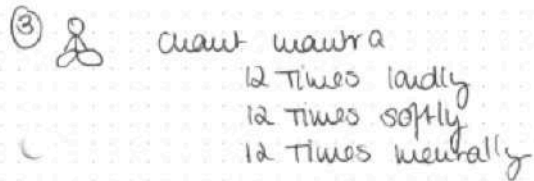 ③ chant mantra
12 Times loudly
12 Times softly
12 Times mentally